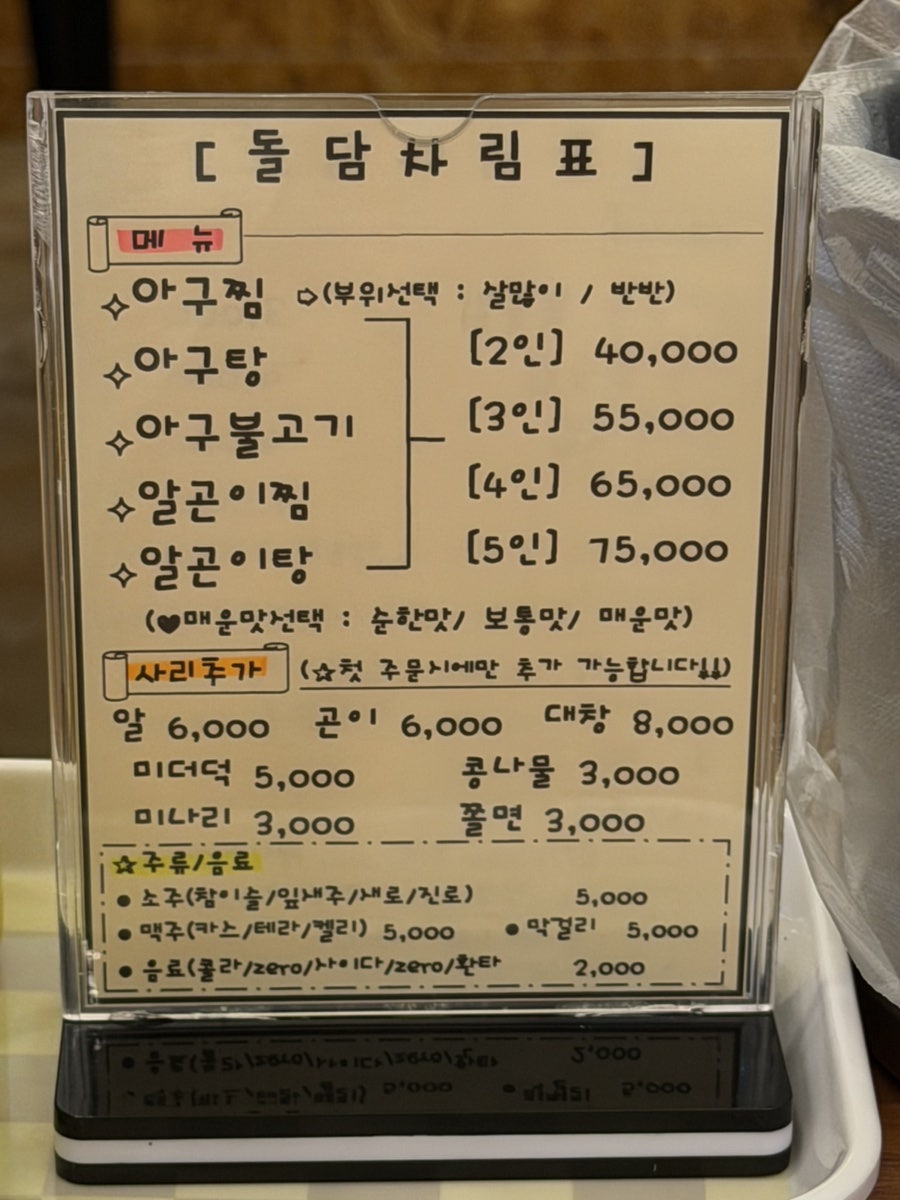 [돌담차림표]
메뉴
✧아구찜 ⇨(부위선택 : 살많이 / 반반)
✧아구탕
✧아구불고기
✧알곤이찜
✧알곤이탕
[2인] 40,000
[3인] 55,000
[4인] 65,000
[5인] 75,000
(♥매운맛선택 : 순한맛/ 보통맛/ 매운맛)
사리추가 (☆첫 주문시에만 추가 가능합니다!!)
알 6,000 곤이 6,000 대창 8,000
미더덕 5,000 콩나물 3,000
미나리 3,000 쫄면 3,000
☆주류/음료
● 소주(참이슬/잎새주/새로/진로) 5,000
● 맥주(카스/테라/켈리) 5,000 ● 막걸리 5,000
● 음료(콜라/zero/사이다/zero/환타 2,000